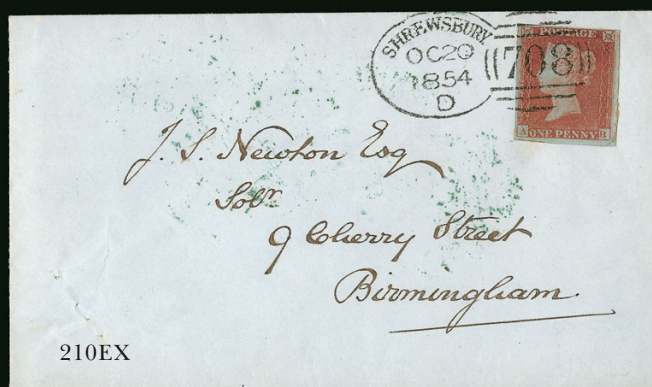 SHREWSBURY
OC20
1854
D
708
POSTAGE
ONE PENNY
J. S. Newton Esq
Solr
9 Cherry Street
Birmingham
210EX